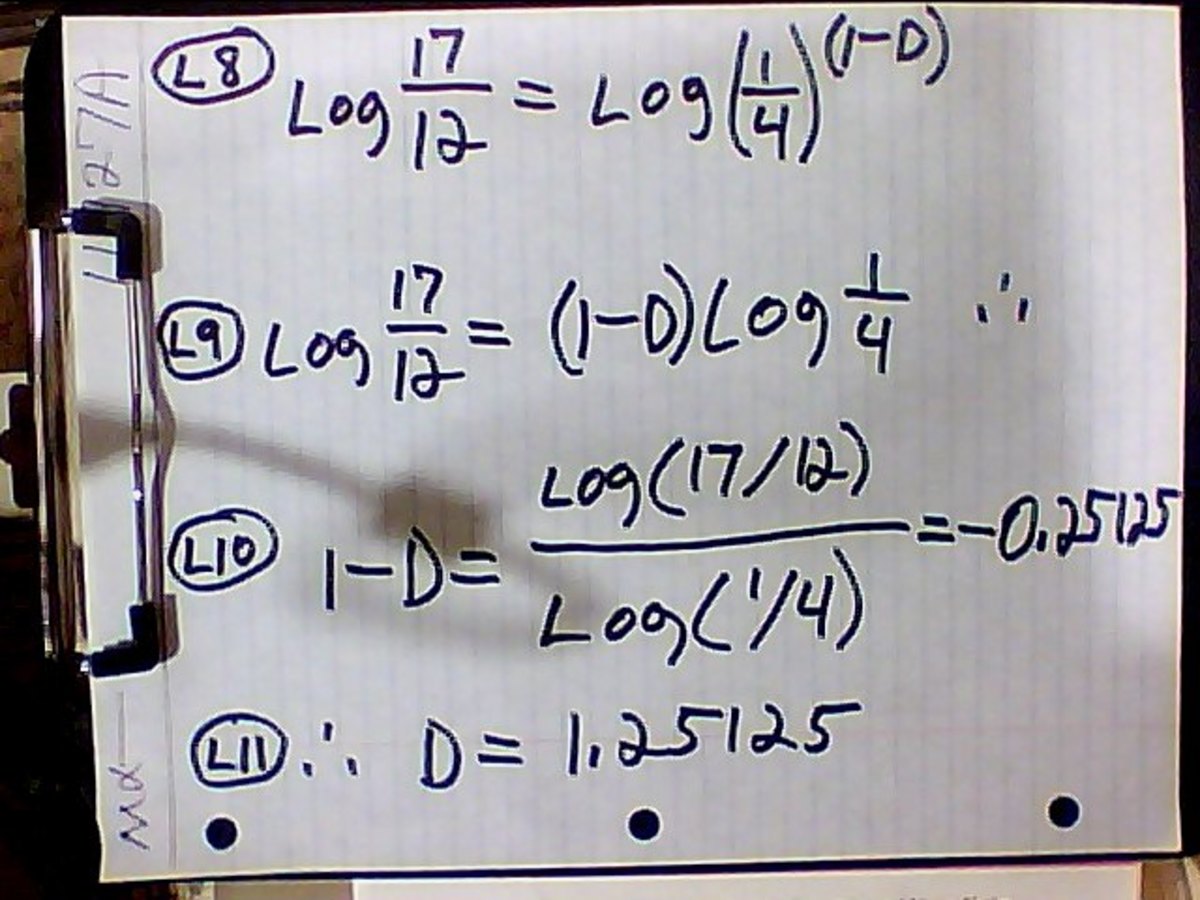 L8 Log 17/12 = Log(1/4)^(1-D)
L9 Log 17/12 = (1-D)Log 1/4 ∴
L10 1-D = Log(17/12) / Log(1/4) = -0.25125
L11 ∴ D = 1.25125